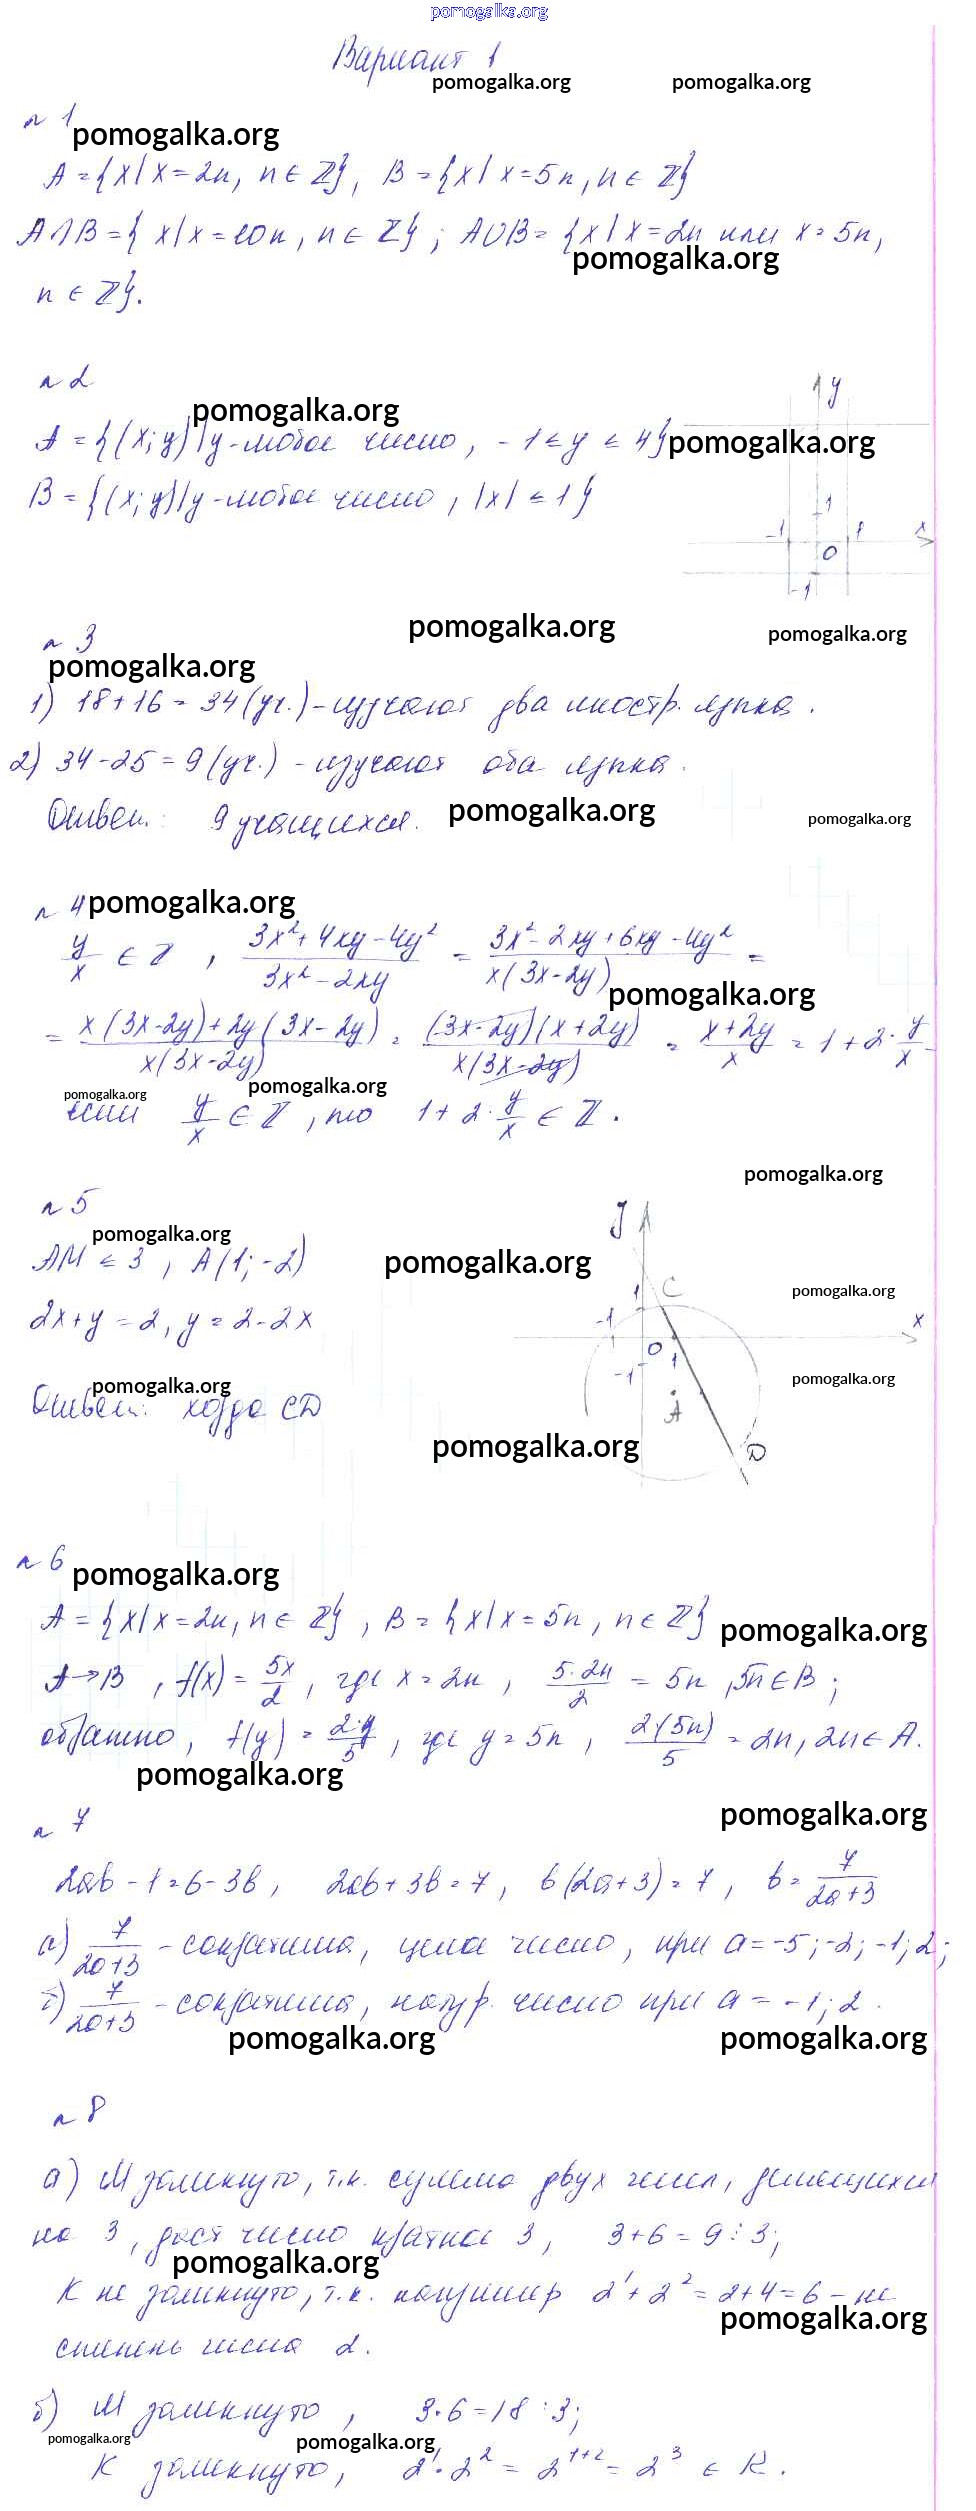 pomogalka.org
Вариант 1
pomogalka.org pomogalka.org
n 1
pomogalka.org
A = {x | x = 2n, n ∈ Z}, B = {x | x = 5n, n ∈ Z}
A∩B = { x | x = 10n, n ∈ Z}; A∪B = {x | x = 2n или x = 5n,
pomogalka.org
n ∈ Z}.
n 2
pomogalka.org
A = {(x; y) | y - любое число, -1 ≤ y ≤ 4}
pomogalka.org
B = {(x; y) | y - любое число, |x| ≤ 1}
y
1
-1 1 x
0
-1
pomogalka.org
pomogalka.org
n 3
pomogalka.org
1) 18 + 16 = 34 (уч.) - изучают два иностр. языка.
2) 34 - 25 = 9 (уч.) - изучают оба языка.
Ответ: 9 учащихся.
pomogalka.org
pomogalka.org
n 4
pomogalka.org
y/x ∈ Z, (3x² + 4xy - 4y²)/(3x² - 2xy) = (3x² - 2xy + 6xy - 4y²)/(x(3x - 2y)) =
pomogalka.org
= (x(3x - 2y) + 2y(3x - 2y))/(x(3x - 2y)) = ((3x - 2y)(x + 2y))/(x(3x - 2y)) = (x + 2y)/x = 1 + 2 · y/x -
pomogalka.org
pomogalka.org
если y/x ∈ Z, то 1 + 2 · y/x ∈ Z.
pomogalka.org
n 5
pomogalka.org
AM ≤ 3, A(1; -2)
pomogalka.org
pomogalka.org
2x + y = 2, y = 2 - 2x
pomogalka.org
pomogalka.org
Ответ: хорда CD
pomogalka.org
y
C
1
-1 x
0 1
-1
A
D
n 6
pomogalka.org
A = {x | x = 2n, n ∈ Z}, B = {x | x = 5n, n ∈ Z}
pomogalka.org
A → B, f(x) = 5x/2, где x = 2n, 5·2n/2 = 5n, 5n ∈ B;
обратно, f(y) = 2·y/5, где y = 5n, 2·(5n)/5 = 2n, 2n ∈ A.
pomogalka.org
pomogalka.org
n 7
2ab - 1 = 6 - 3b, 2ab + 3b = 7, b(2a + 3) = 7, b = 7/(2a + 3)
а) 7/(2a + 3) - сократима, цела число, при a = -5; -2; -1; 2;
б) 7/(2a + 3) - сократима, натур. число при a = -1; 2.
pomogalka.org pomogalka.org
n 8
а) M замкнуто, т.к. сумма двух чисел, делящихся
на 3, даст число кратное 3, 3 + 6 = 9 ⋮ 3;
pomogalka.org
K не замкнуто, т.к. например 2¹ + 2² = 2 + 4 = 6 - не
pomogalka.org
степень числа 2.
б) M замкнуто, 3·6 = 18 ⋮ 3;
pomogalka.org pomogalka.org
K замкнуто, 2¹·2² = 2¹⁺² = 2³ ∈ K.